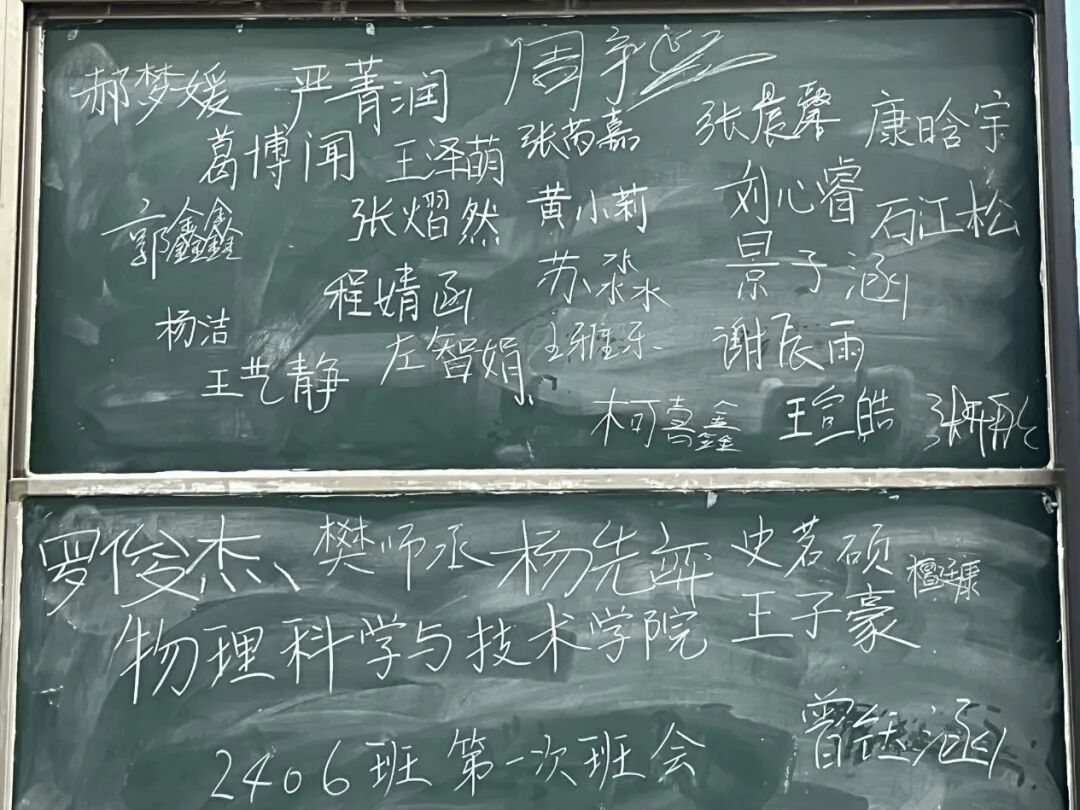 郝梦媛 严菁润 周宇
葛博闻 王泽萌 张芮嘉 张晨馨 康晗宇
郭鑫鑫 张熠然 黄小莉 刘心睿 石江松
程婧函 苏淼淼 景子涵
杨洁 左智娟 王雅乐 谢辰雨
王艺静 柯喜鑫 王宣皓
罗俊杰 樊师丞 杨先弈 史茗硕
物理科学与技术学院 王子豪 檀廷康
2406班第一次班会 曾钰涵